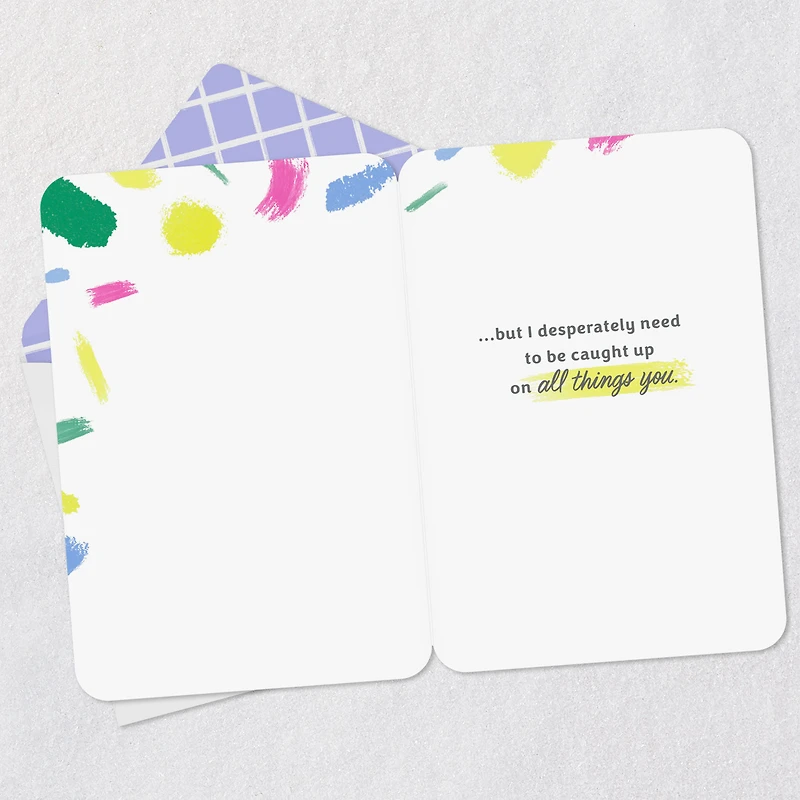 ...but I desperately need
to be caught up
on all things you.